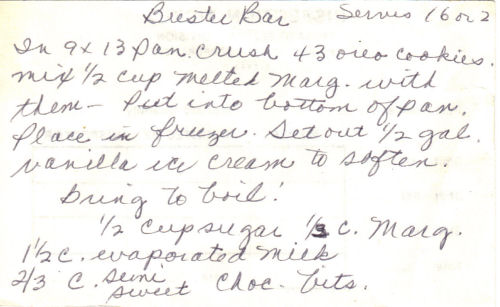 Buster Bar Serves 16 or 2
In 9x13 pan. crush 43 oreo cookies.
mix 1/2 cup melted Marg. with
them - Put into bottom of pan.
Place in freezer. Set out 1/2 gal.
vanilla ice cream to soften.
bring to boil!
1/2 cup sugar 1/3 c. Marg.
1 1/2 c. evaporated milk
2/3 c. semi sweet choc. bits.